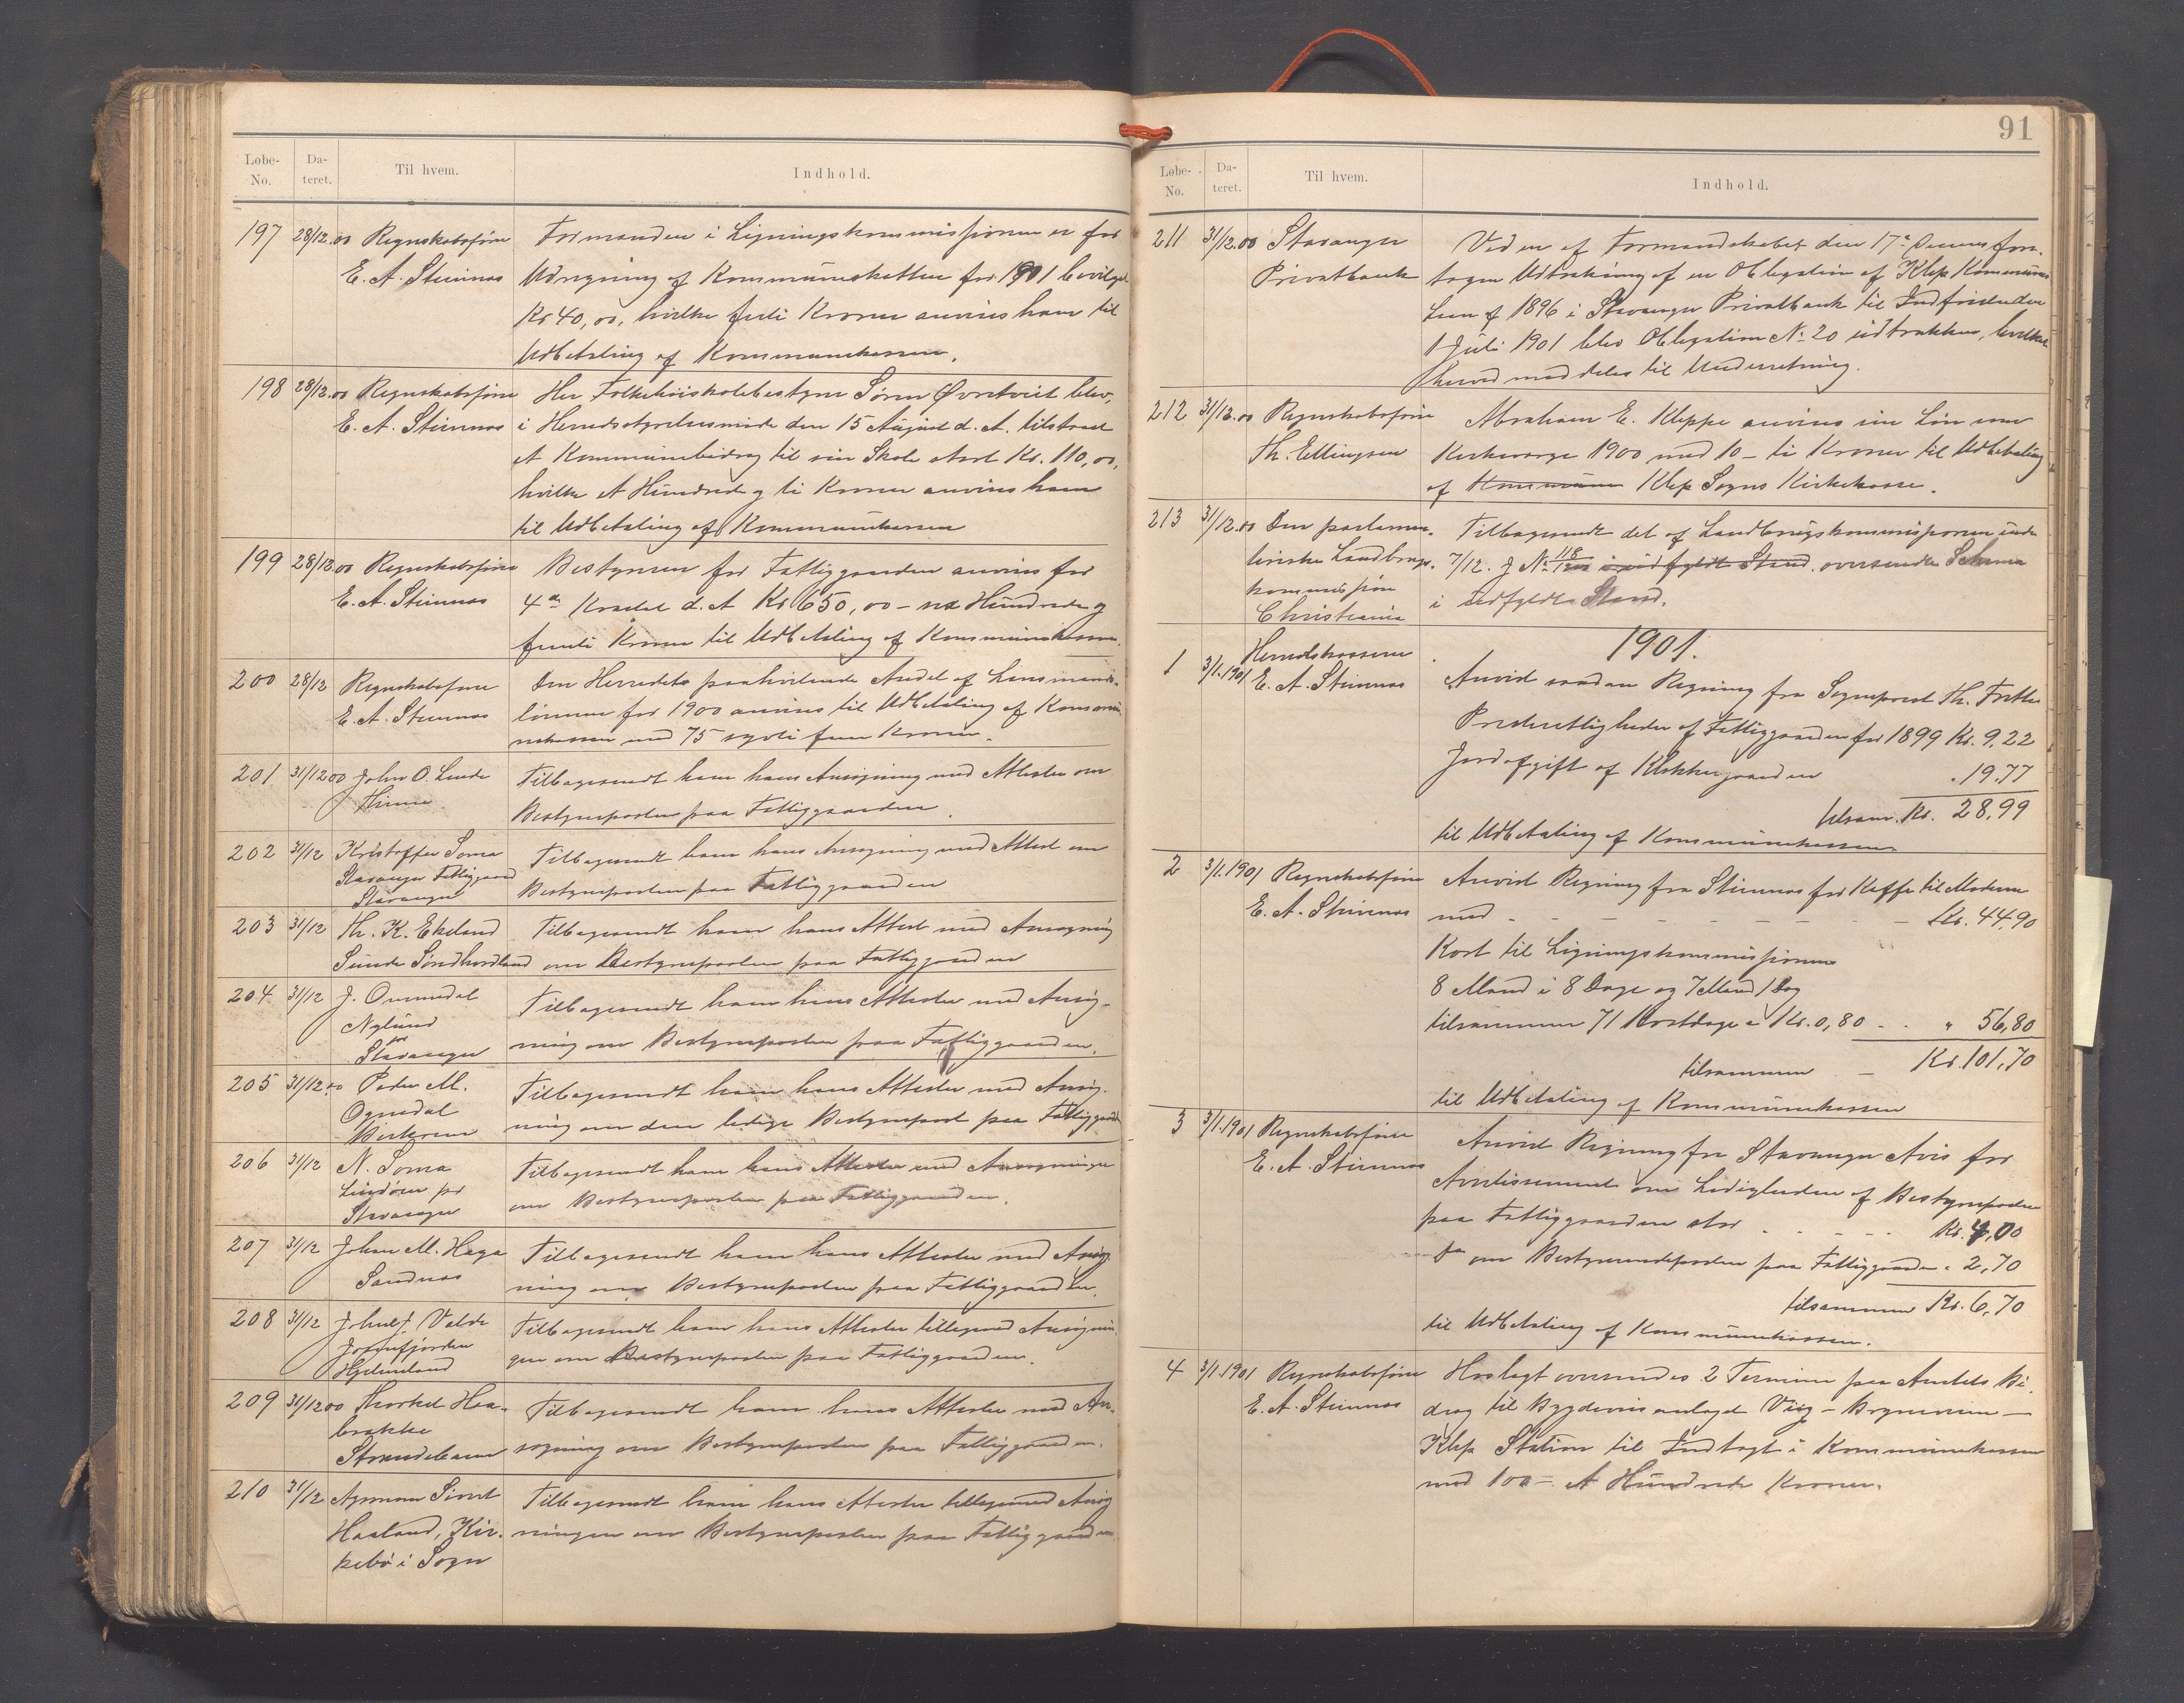 Løbe-No. Da-teret. Til hvem. Indhold.
197 28/12.00 Regnskabsfører Formanden i Ligningskommissionen er for
E. A. Steinnes Udregning af Kommuneskatten for 1901 bevilget
Kr 40,00, hvilke førti Kroner anvises ham til
Udbetaling af Kommunekassen.
198 28/12.00 Regnskabsfører Herr Folkehøiskolebestyrer Sören Øvretveit blev,
E. A. Steinnes i Herredsstyrelsesmøde den 15 August d. A. tilstaaet
et Kommunebidrag til sin Skole stort Kr. 110,00,
hvilke et Hundrede og ti Kroner anvises ham
til Udbetaling af Kommunekassen
199 28/12.00 Regnskabsfører Bestyreren for Fattiggaarden anvises for
E. A. Steinnes 4de Kvartal d. A Kr 650,00 – sex Hundrede og
femti Kroner til Udbetaling af Kommunekassen.
200 28/12 Regnskabsfører Den Herredets paahvilende Andel af Lensmands-
E. A. Steinnes lönnen for 1900 anvises til Udbetaling af Kommu-
nekassen med 75 sytti fem Kroner.
201 31/12 00 John O. Lende Tilbagesendt ham hans Ansøgning med Attester om
Hinna Bestyrerposten paa Fattiggaarden.
202 31/12 Kristoffer Soma Tilbagesendt ham hans Ansøgning med Attest om
Stavanger Fattiggaard Bestyrerposten paa Fattiggaarden
Stavanger
203 31/12 Th. K. Ekeland Tilbagesendt ham hans Attest med Ansøgning
Sunde Söndhordland om Bestyrerposten paa Fattiggaarden
204. 31/12 J. Oursdal Tilbagesendt ham hans Attester med Ansög-
Nylund ning om Bestyrerposten paa Fattiggaarden.
pr
Stavanger
205 31/12.00 Peder M. Tilbagesendt ham hans Attester med Ansög-
Ognedal ning om den ledige Bestyrerpost paa Fattiggaarden
Bjerkreim
206 31/12 N. Soma Tilbagesendt ham hans Attester med Ansøgningen
Lindøen pr om Bestyrerposten paa Fattiggaarden.
Stavanger
207 31/12 Johan M. Haga Tilbagesendt ham hans Attester med Ansøg
Sandnes ning om Bestyrerposten paa Fattiggaarden.
208 31/12 Velde Tilbagesendt ham hans Attester tilligemed Ansøgnin-
Jøsenfjorden gen om Bestyrerposten paa Fattiggaarden.
Hjelmeland
209 31/12 00 Thorkel Haa- Tilbagesendt ham hans Attester med An-
brække søgning om Bestyrerposten paa Fattiggaarden.
Strandebarm
210 31/12 Agronom Sivert Tilbagesendt ham hans Attester tilligemed Ansög
Haaland, Kir- ningen om Bestyrerposten paa Fattiggaarden.
kebø i Sogn
91
Løbe-No. Da-teret. Til hvem. Indhold.
211 31/12.00 Stavanger Ved en af Formandskabet den 17de Dennes fore-
Privatbank tagen Udtrækning af en Obligation af Klep Kommunes
Laan af 1896 i Stavanger Privatbank til Indfrielse den
1 Juli 1901 blev Obligation No. 20 udtrukken, hvilket
herved meddeles til Underretning.
212 31/12.00 Regnskabsfører Abraham E. Kleppe anvises sin Løn som
Th. Ellingsen Kirkeverge 1900 med 10 – ti Kroner til Udbetaling
af Kommune Klep Sogns Kirkekasse.
213 31/12.00 Den parlamen- Tilbagesendt det af Landbrugskommissionen under
tariske Landbrugs- 7/12. J No. 118 i udfyldt Stand. oversendte Schema
kommission i udfyldt Stand.
Christiania
1901.
1 3/1.1901 Herredskasserer
E. A. Steinnes Anvist saadan Regning fra Sogneprest Th.
Presterettigheder af Fattiggaarden for 1899 Kr. 9,22
Jordafgift af Klokkergaarden „ 19.77
tilsam. Kr. 28,99
til Udbetaling af Kommunekassen.
2 3/1.1901 Regnskabsfører Anvist Regning fra Steinnes for Kaffe til Møderne
E. A. Steinnes med – – – – – – – Kr. 44,90
Kost til Ligningskommissionen
8 Mand i 8 Dage og 7 Mand 1 Dag
tilsammen 71 Kostdage a Kr. 0,80 - - „ 56,80
tilsammen – Kr 101,70
til Udbetaling af Kommunekassen
3 3/1.1901 Regnskabsfører Anvist Regning fra Stavanger Avis for
E. A. Steinnes Avertissement om Ledigheden af Bestyrerposten
paa Fattiggaarden stor - - - - - Kr. 4,00
Do om Bestyrerposten paa Fattiggaarden „ 2,70
tilsammen Kr. 6,70
til Udbetaling af Kommunekassen.
4 3/1.1901 Regnskabsfører Hoslagt oversendes 2 Termin paa Amtets Bi-
E. A. Steinnes drag til Bygdeveisanlæget Vig – Bryneveien –
Klep Station til Indtægt i Kommunekassen
med 100 – et Hundrede Kroner.